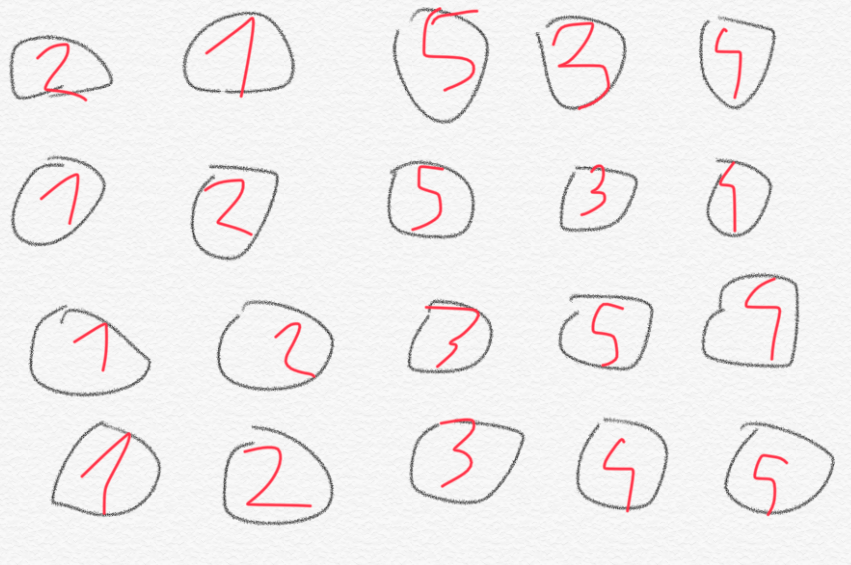 2 1 5 3 4
1 2 5 3 4
1 2 3 5 4
1 2 3 4 5